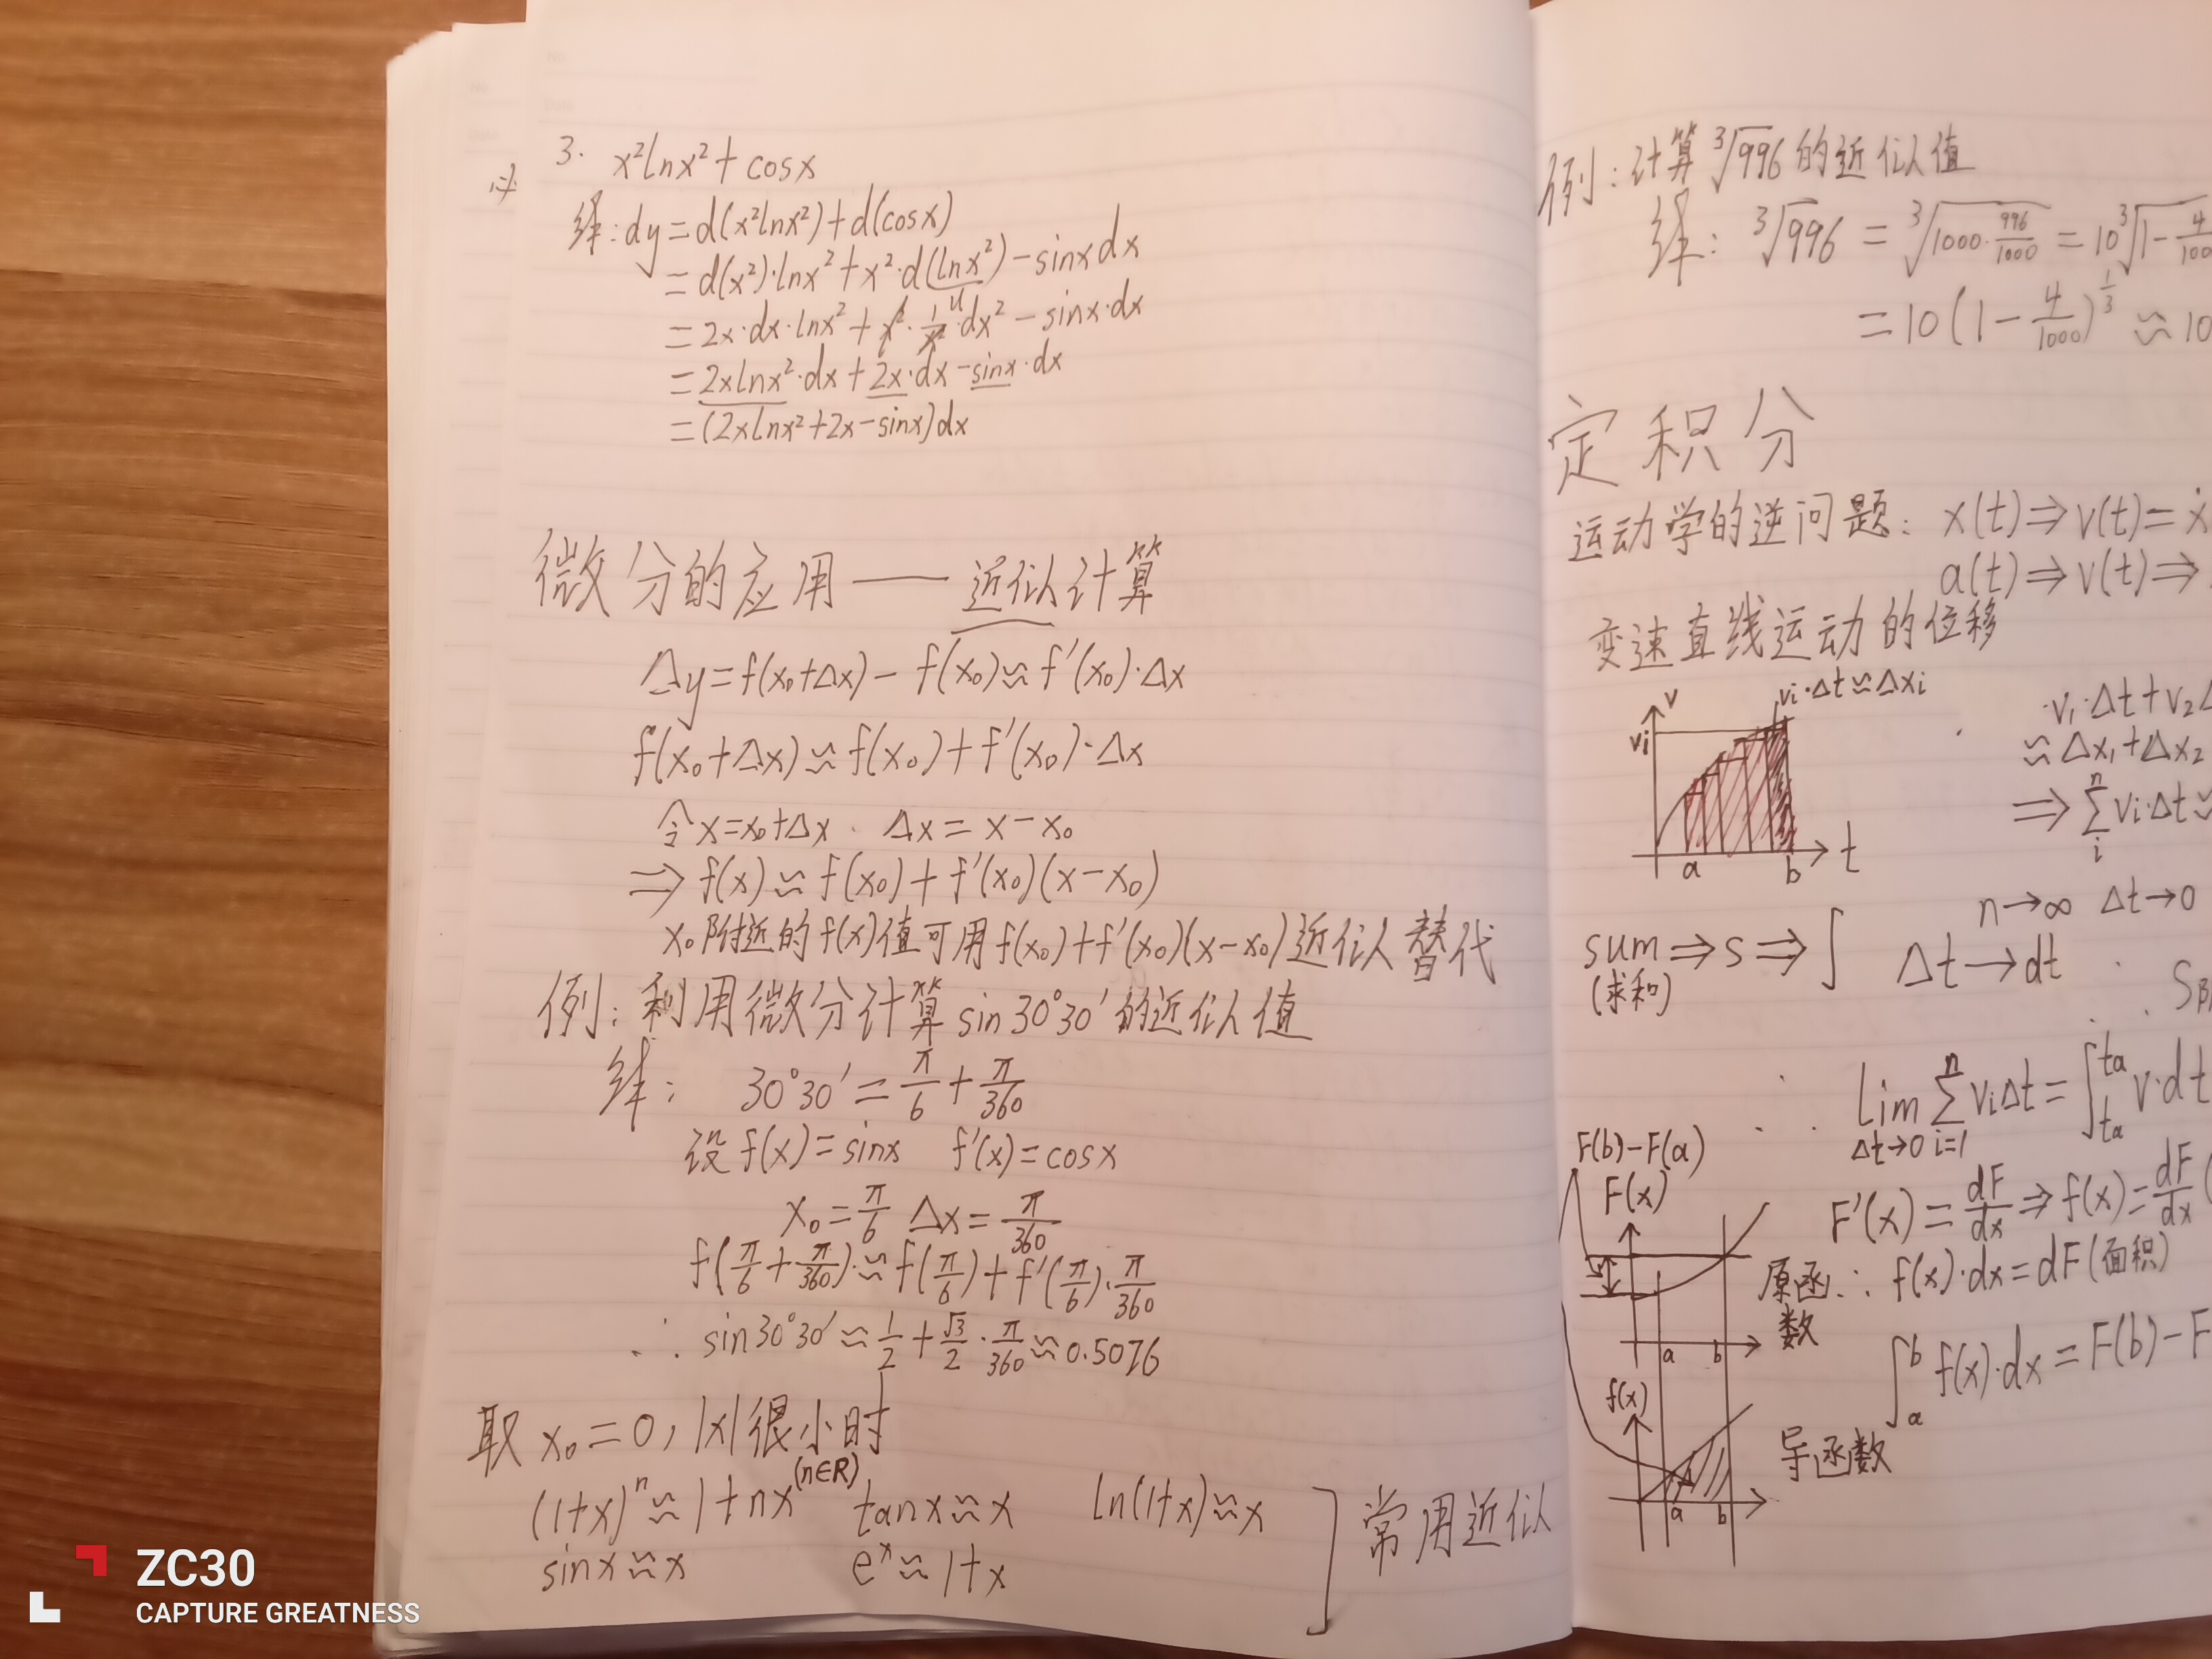 3. x²lnx²+cosx
解:dy=d(x²lnx²)+d(cosx)
=d(x²)·lnx²+x²·d(lnx²)-sinxdx
u
=2x·dx·lnx²+x²·1/x²·dx²-sinx·dx
=2xlnx²·dx+2x·dx-sinx·dx
=(2xlnx²+2x-sinx)dx
微分的应用——近似计算
Δy=f(x₀+Δx)-f(x₀)≈f'(x₀)·Δx
f(x₀+Δx)≈f(x₀)+f'(x₀)·Δx
令x=x₀+Δx Δx=x-x₀
⇒f(x)≈f(x₀)+f'(x₀)(x-x₀)
x₀附近的f(x)值可用f(x₀)+f'(x₀)(x-x₀)近似替代
例:利用微分计算sin30°30'的近似值
解: 30°30'=π/6+π/360
设f(x)=sinx f'(x)=cosx
x₀=π/6 Δx=π/360
f(π/6+π/360)≈f(π/6)+f'(π/6)·π/360
∴sin30°30'≈1/2+√3/2·π/360≈0.5076
取x₀=0,|x|很小时
(1+x)ⁿ≈1+nx(n∈R) tanx≈x ln(1+x)≈x
sinx≈x eˣ≈1+x
常用近似
例:计算³√996的近似值
解:³√996=³√1000·996/1000=10³√1-4/100
=10(1-4/1000)^1/3≈10
定积分
运动学的逆问题:x(t)⇒v(t)=ẋ
a(t)⇒v(t)⇒
变速直线运动的位移
v vᵢ·Δt≈Δxᵢ
vᵢ
a b t
v₁·Δt+v₂Δ
≈Δx₁+Δx₂
⇒∑ⁿᵢvᵢ·Δt≈
n→∞ Δt→0
sum⇒s⇒∫ Δt→dt
(求和)
∴lim Δt→0 ∑ⁿᵢ₌₁vᵢΔt=∫v·dt
F(b)-F(a)
F(x)
F'(x)=dF/dx⇒f(x)=dF/dx(
原函数
∴f(x)·dx=dF(面积)
a b
∫ₐᵇf(x)·dx=F(b)-F
f(x)
导函数
a b
ZC30
CAPTURE GREATNESS